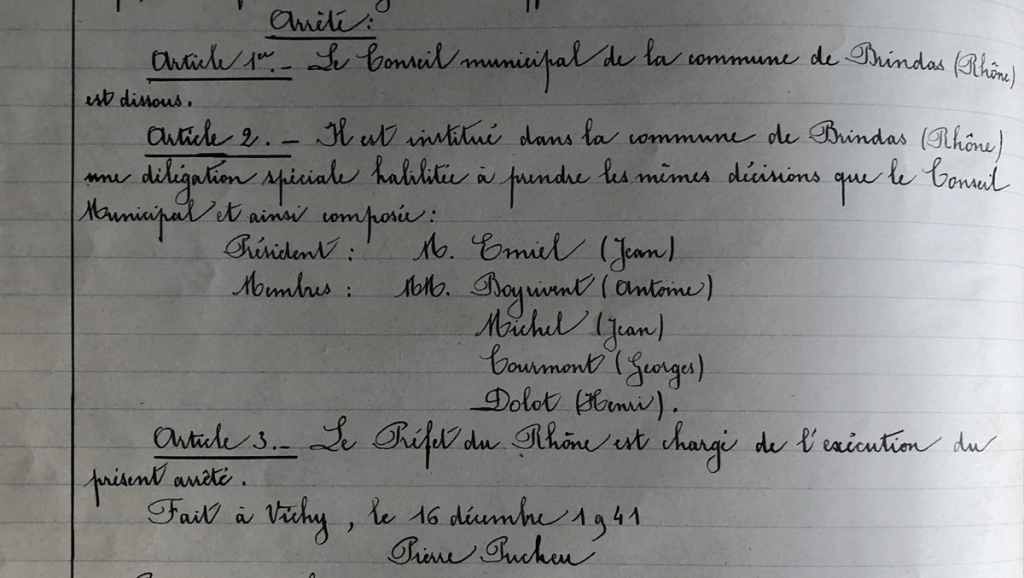 Arrêté :
Article 1er.- Le Conseil municipal de la commune de Brindas (Rhône)
est dissous.
Article 2. - Il est institué dans la commune de Brindas (Rhône)
une délégation spéciale habilitée à prendre les mêmes décisions que le Conseil
Municipal et ainsi composée :
Président : M. Emiel (Jean)
Membres : MM. Boyrivent (Antoine)
Michel (Jean)
Courmont (Georges)
Dolot (Henri).
Article 3.- Le Préfet du Rhône est chargé de l'exécution du
présent arrêté.
Fait à Vichy, le 16 décembre 1941
Pierre Pucheu